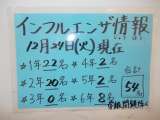 インフルエンザ情報
12月24日(火)現在
*1年22名 *4年2名
*2年20名 *5年2名
*3年0名 *6年8名
合計
54名
学級閉鎖